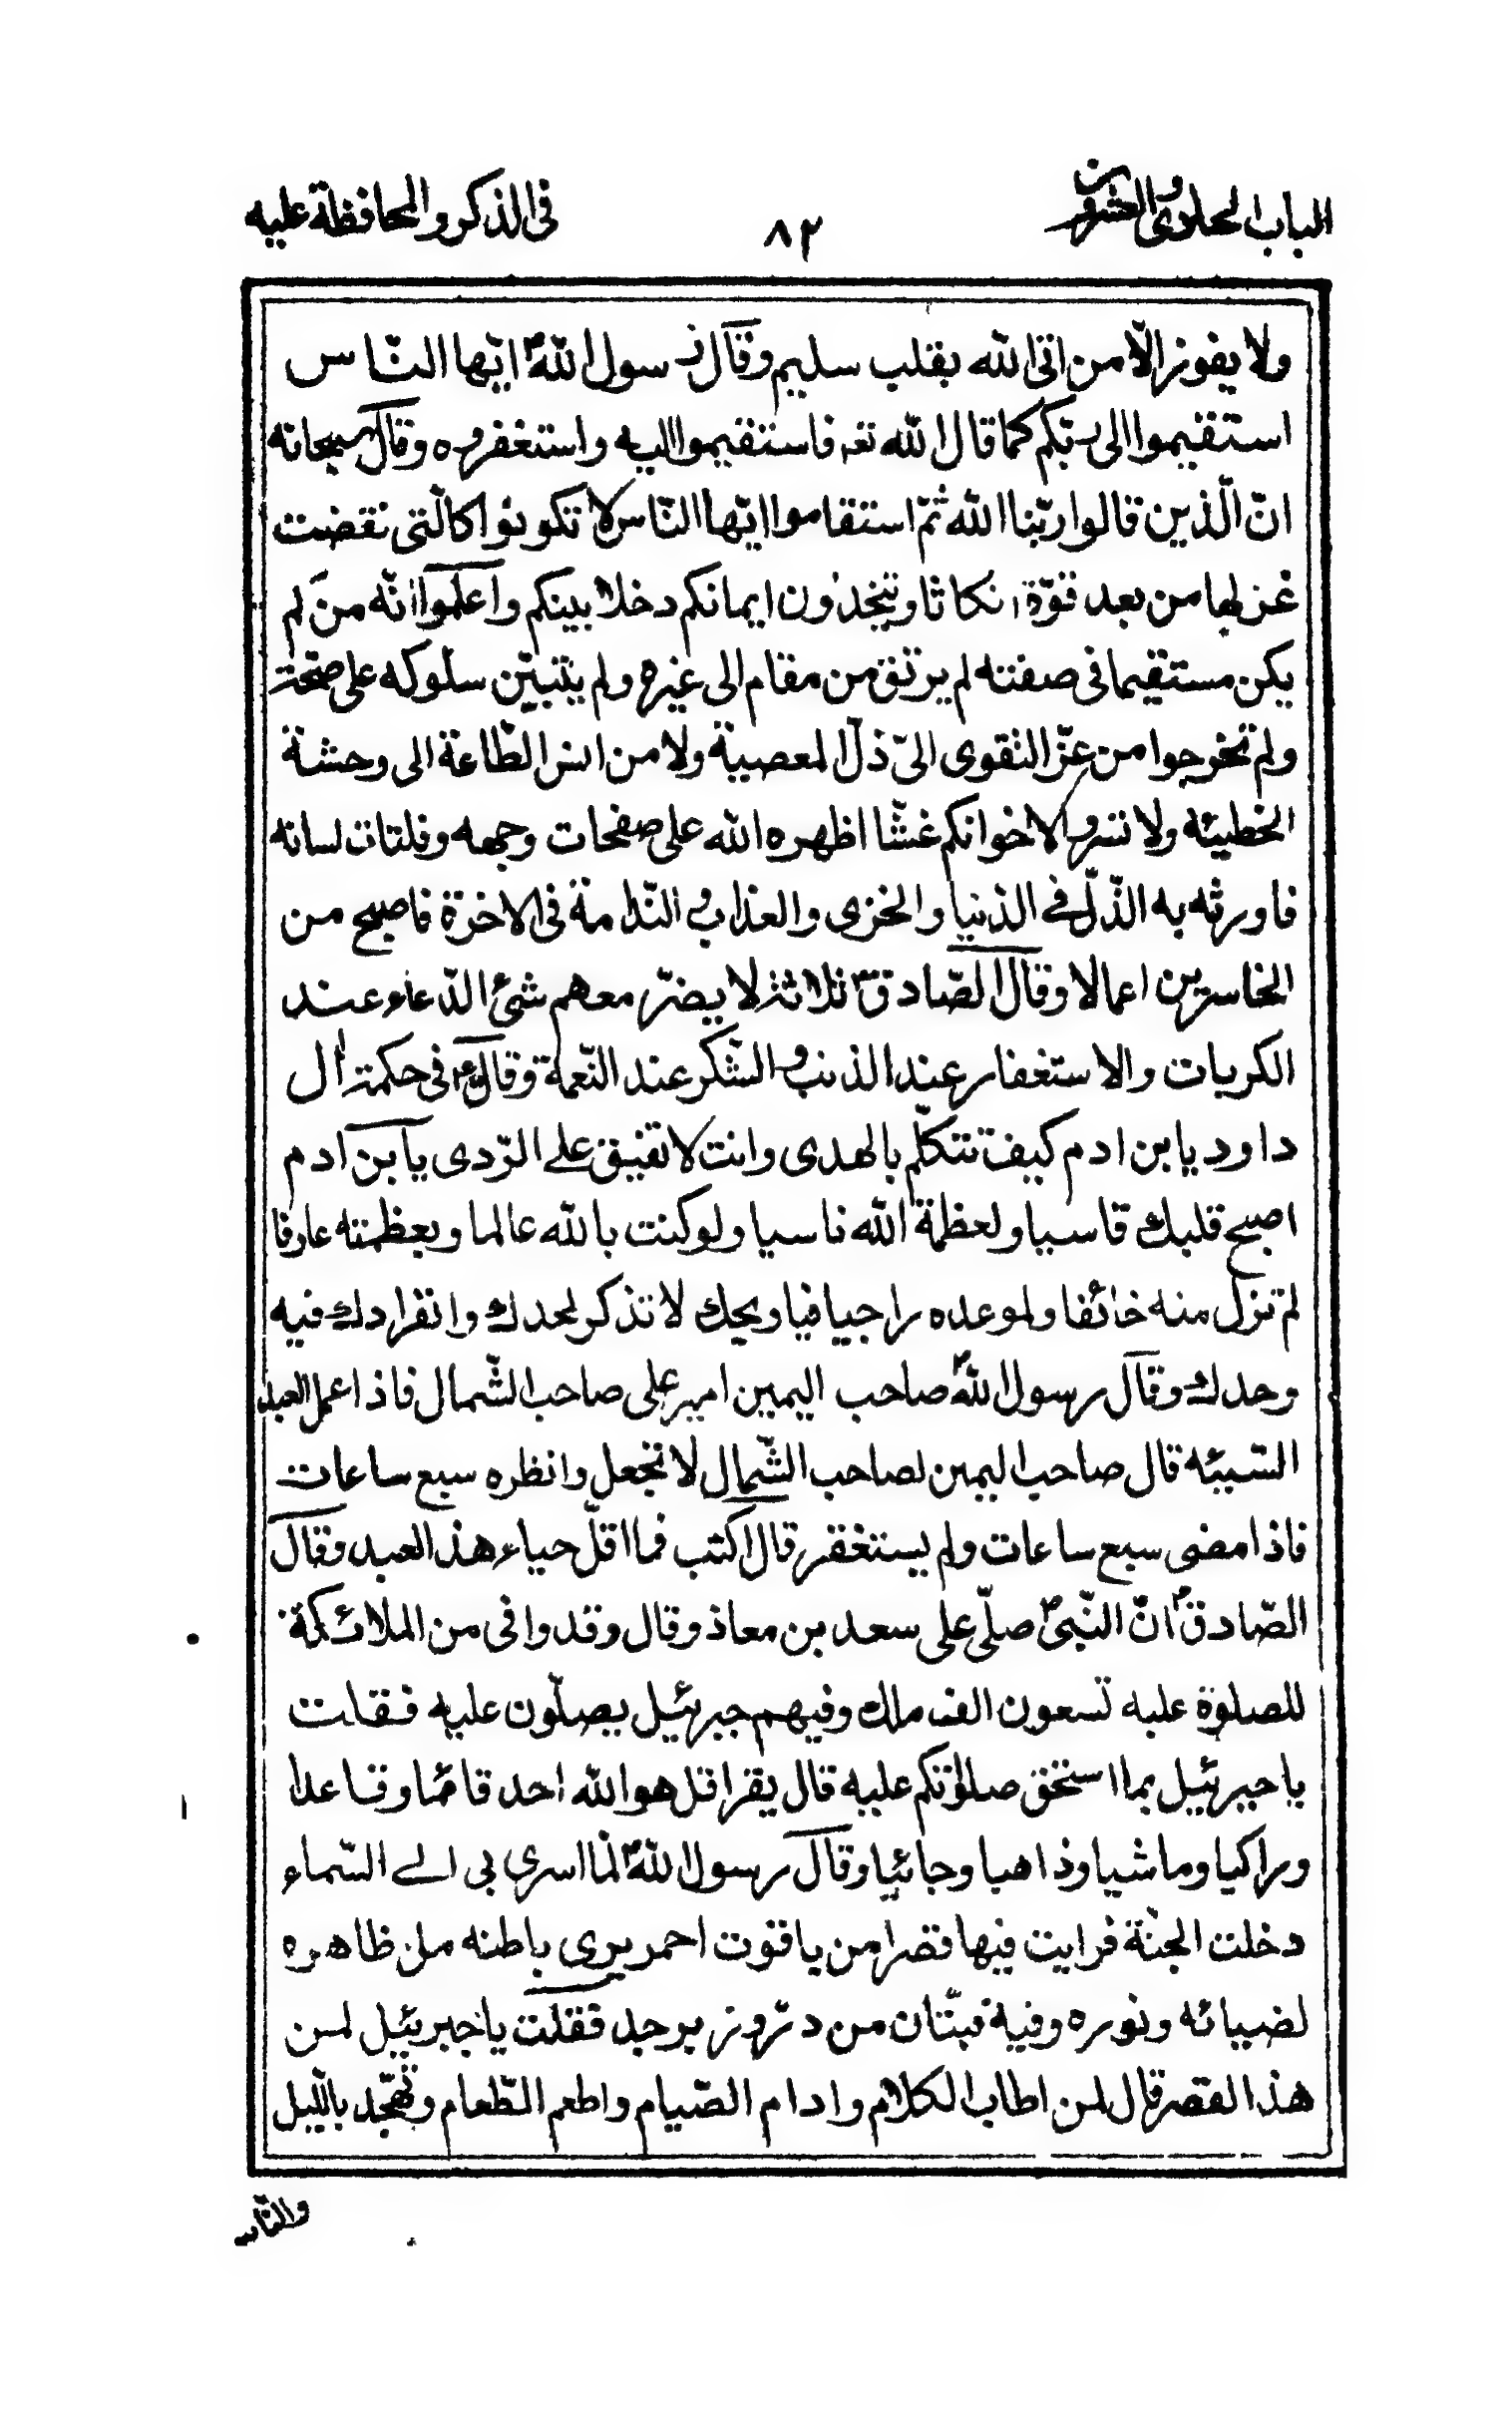 الباب الحادى والعشرون
٨٢
فى الذكر والمحافظة عليه
ولا يفوز الّا من اتى الله بقلب سليم وقال رسول اللهؐ ايّها النّاس
استقيموا الى ربّكم كما قال الله تعه فاستقيموا اليه واستغفروه وقال سبحانه
انّ الّذين قالوا ربّنا الله ثمّ استقاموا ايّها النّاس لا تكونوا كالّتى نقضت
غزلها من بعد قوّة انكاثا وتتخذون ايمانكم دخلا بينكم واعلموا انّه من لم
يكن مستقيما فى صفته لم يرتق من مقام الى غيره ولم يتبيّن سلوكه على صحّة
ولم تخرجوا من عزّ التقوى الى ذلّ المعصية ولا من انس الطّاعة الى وحشة
الخطيئة ولا تسرّوا لاخوانكم غشّا اظهره الله على صفحات وجهه وفلتات لسانه
فاورثه به الذّلّ فى الدّنيا والخزى والعذاب والنّدامة فى الاخرة فاصبح من
الخاسرين اعمالا وقال الصّادقؑ ثلاثة لا يضرّ معهم شئ الدّعاء عند
الكربات والاستغفار عند الذنب والشّكر عند النّعمة وقالؑ فى حكمة ال
داود يا بن ادم كيف تتكلّم بالهدى وانت لا تفيق على الرّدى يا بن ادم
اصبح قلبك قاسيا ولعظمة الله ناسيا ولو كنت بالله عالما وبعظمته عارفا
لم تزل منه خائفا ولموعده راجيا فيا ويحك لا تذكر لحدك وانفرادك فيه
وحدك وقال رسول اللهؐ صاحب اليمين امير على صاحب الشّمال فاذا عمل العبد
السّيئة قال صاحب اليمين لصاحب الشّمال لا تعجل وانظره سبع ساعات
فاذا مضى سبع ساعات ولم يستغفر قال اكتب فما اقلّ حياء هذا العبد وقال
الصّادقؑ انّ النّبىؐ صلّى على سعد بن معاذ وقال وقد وافى من الملائكة
للصلوة عليه تسعون الف ملك وفيهم جبرئيل يصلّون عليه فقلت
يا جبرئيل بما استحق صلوتكم عليه قال يقرا قل هو الله احد قائما وقاعدا
وراكبا وماشيا وذاهبا وجائيا وقال رسول اللهؐ لمّا اسرى بى الى السّماء
دخلت الجنّة فرايت فيها قصرا من ياقوت احمر يرى باطنه من ظاهره
لضيائه ونوره وفيه قبّتان من درّ وزبرجد فقلت يا جبرئيل لمن
هذا القصر قال لمن اطاب الكلام وادام الصّيام واطعم الطّعام وتهجّد بالّليل
والنّاس